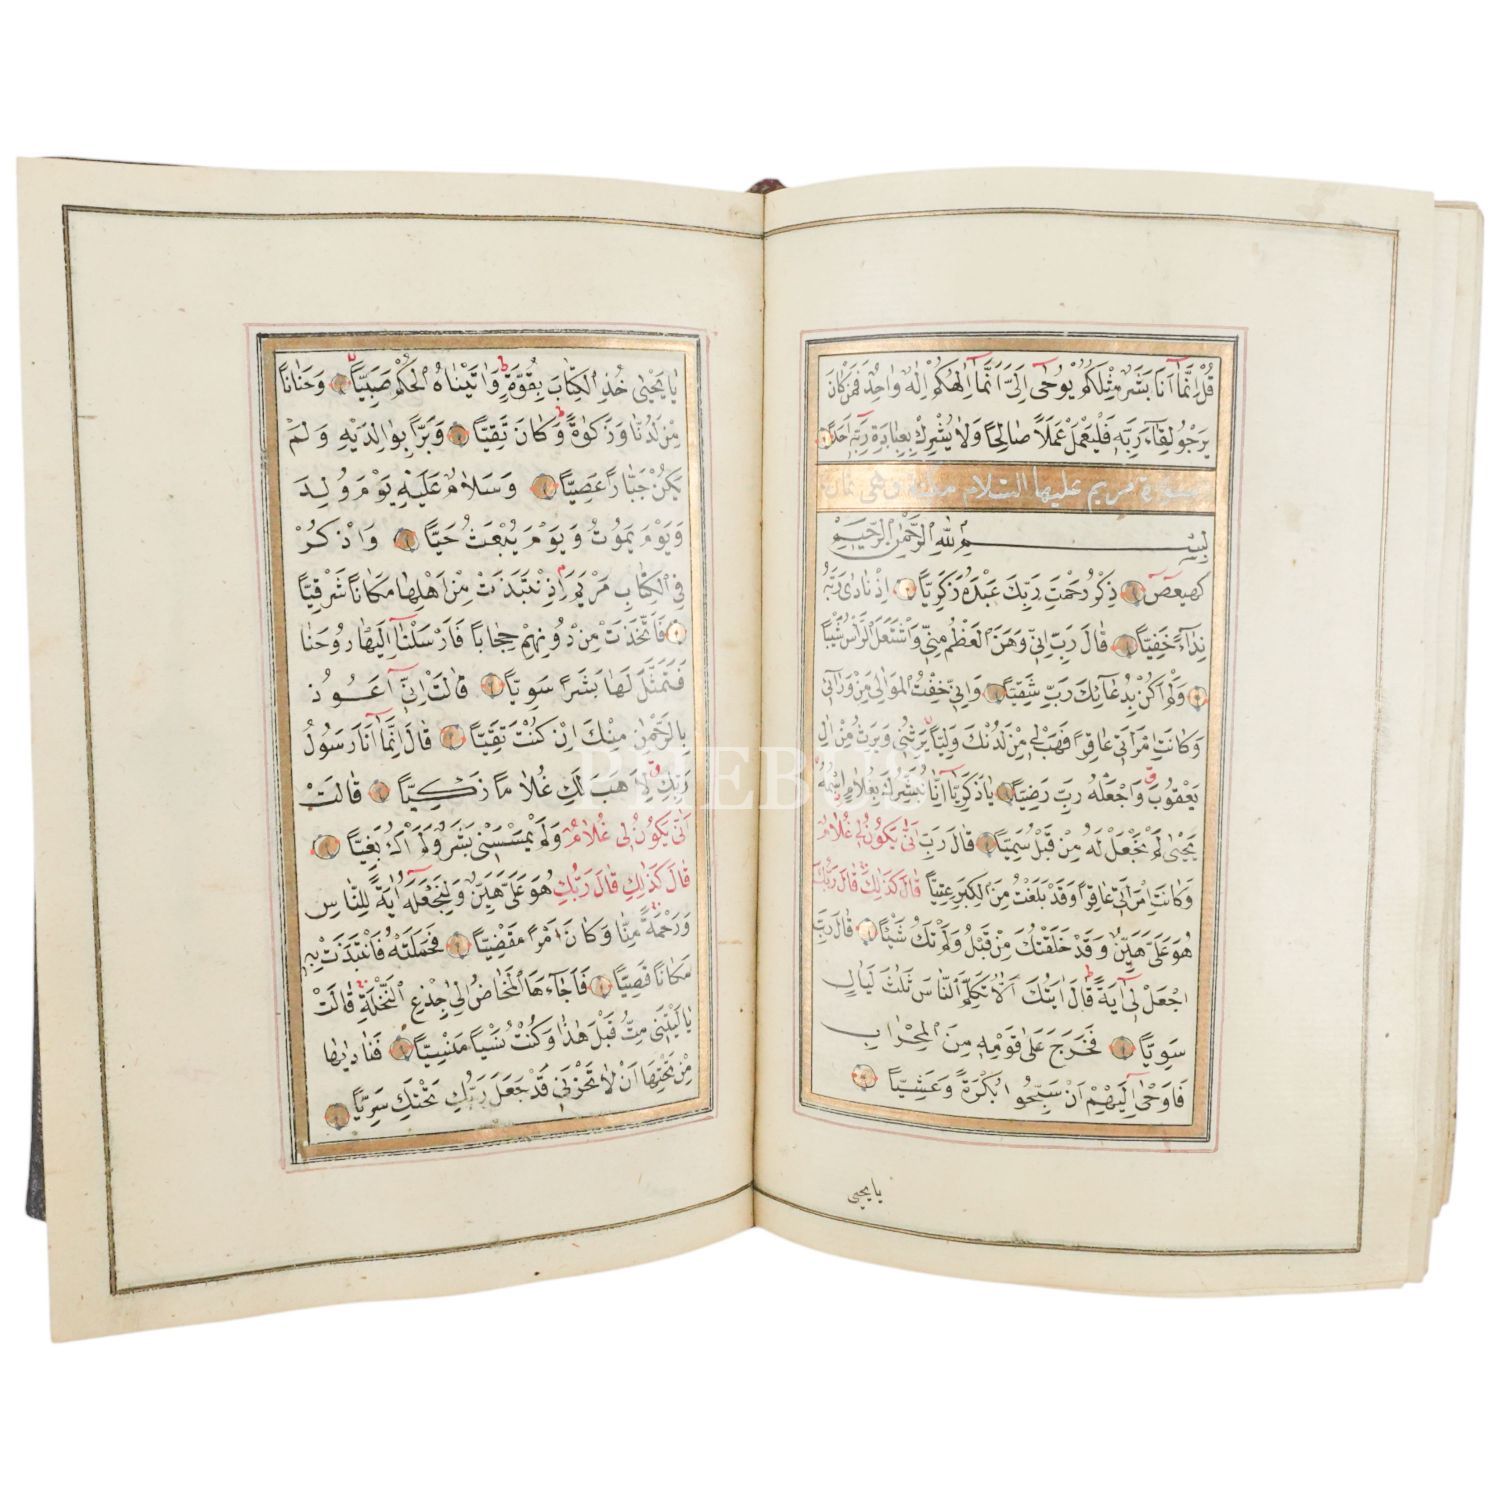 قُلْ اِنَّمَٓا اَنَا۬ بَشَرٌ مِثْلُكُمْ يُوحٰٓى اِلَيَّ اَنَّمَٓا اِلٰهُكُمْ اِلٰهٌ وَاحِدٌ فَمَنْ كَانَ
يَرْجُو لِقَٓاءَ رَبِّهٖ فَلْيَعْمَلْ عَمَلًا صَالِحًا وَلَا يُشْرِكْ بِعِبَادَةِ رَبِّهٖٓ اَحَدًا
سورة مريم عليها السلام مكية وهي ثمان
بِسْمِ اللّٰهِ الرَّحْمٰنِ الرَّحٖيمِ
كٓهٰيٰعٓصٓ ذِكْرُ رَحْمَتِ رَبِّكَ عَبْدَهُ زَكَرِيَّا اِذْ نَادٰى رَبَّهُ
نِدَٓاءً خَفِيًّا قَالَ رَبِّ اِنّٖي وَهَنَ الْعَظْمُ مِنّٖي وَاشْتَعَلَ الرَّأْسُ شَيْبًا
وَلَمْ اَكُنْ بِدُعَٓائِكَ رَبِّ شَقِيًّا وَاِنّٖي خِفْتُ الْمَوَالِيَ مِنْ وَرَٓائٖي
وَكَانَتِ امْرَاَتٖي عَاقِرًا فَهَبْ لٖي مِنْ لَدُنْكَ وَلِيًّا يَرِثُنٖي وَيَرِثُ مِنْ اٰلِ
يَعْقُوبَ وَاجْعَلْهُ رَبِّ رَضِيًّا يَا زَكَرِيَّٓا اِنَّا نُبَشِّرُكَ بِغُلَامٍ اسْمُهُ
يَحْيٰى لَمْ نَجْعَلْ لَهُ مِنْ قَبْلُ سَمِيًّا قَالَ رَبِّ اَنّٰى يَكُونُ لٖي غُلَامٌ
وَكَانَتِ امْرَاَتٖي عَاقِرًا وَقَدْ بَلَغْتُ مِنَ الْكِبَرِ عِتِيًّا قَالَ كَذٰلِكَ قَالَ رَبُّكَ
هُوَ عَلَيَّ هَيِّنٌ وَقَدْ خَلَقْتُكَ مِنْ قَبْلُ وَلَمْ تَكُ شَيْئًا قَالَ رَبِّ
اجْعَلْ لٖٓي اٰيَةً قَالَ اٰيَتُكَ اَلَّا تُكَلِّمَ النَّاسَ ثَلٰثَ لَيَالٍ
سَوِيًّا فَخَرَجَ عَلٰى قَوْمِهٖ مِنَ الْمِحْرَابِ
فَاَوْحٰٓى اِلَيْهِمْ اَنْ سَبِّحُوا بُكْرَةً وَعَشِيًّا
يا يحيى
يَا يَحْيٰى خُذِ الْكِتَابَ بِقُوَّةٍ وَاٰتَيْنَاهُ الْحُكْمَ صَبِيًّا وَحَنَانًا
مِنْ لَدُنَّا وَزَكٰوةً وَكَانَ تَقِيًّا وَبَرًّا بِوَالِدَيْهِ وَلَمْ
يَكُنْ جَبَّارًا عَصِيًّا وَسَلَامٌ عَلَيْهِ يَوْمَ وُلِدَ
وَيَوْمَ يَمُوتُ وَيَوْمَ يُبْعَثُ حَيًّا وَاذْكُرْ
فِي الْكِتَابِ مَرْيَمَ اِذِ انْتَبَذَتْ مِنْ اَهْلِهَا مَكَانًا شَرْقِيًّا
فَاتَّخَذَتْ مِنْ دُونِهِمْ حِجَابًا فَاَرْسَلْنَٓا اِلَيْهَا رُوحَنَا
فَتَمَثَّلَ لَهَا بَشَرًا سَوِيًّا قَالَتْ اِنّٖٓي اَعُوذُ
بِالرَّحْمٰنِ مِنْكَ اِنْ كُنْتَ تَقِيًّا قَالَ اِنَّمَٓا اَنَا۬ رَسُولُ
رَبِّكِ لِاَهَبَ لَكِ غُلَامًا زَكِيًّا قَالَتْ
اَنّٰى يَكُونُ لٖي غُلَامٌ وَلَمْ يَمْسَسْنٖي بَشَرٌ وَلَمْ اَكُ بَغِيًّا
قَالَ كَذٰلِكِ قَالَ رَبُّكِ هُوَ عَلَيَّ هَيِّنٌ وَلِنَجْعَلَهُٓ اٰيَةً لِلنَّاسِ
وَرَحْمَةً مِنَّا وَكَانَ اَمْرًا مَقْضِيًّا فَحَمَلَتْهُ فَانْتَبَذَتْ بِهٖ
مَكَانًا قَصِيًّا فَاَجَٓاءَهَا الْمَخَاضُ اِلٰى جِذْعِ النَّخْلَةِ قَالَتْ
يَا لَيْتَنٖي مِتُّ قَبْلَ هٰذَا وَكُنْتُ نَسْيًا مَنْسِيًّا فَنَادٰيهَا
مِنْ تَحْتِهَٓا اَلَّا تَحْزَنٖي قَدْ جَعَلَ رَبُّكِ تَحْتَكِ سَرِيًّا
PHEBUS